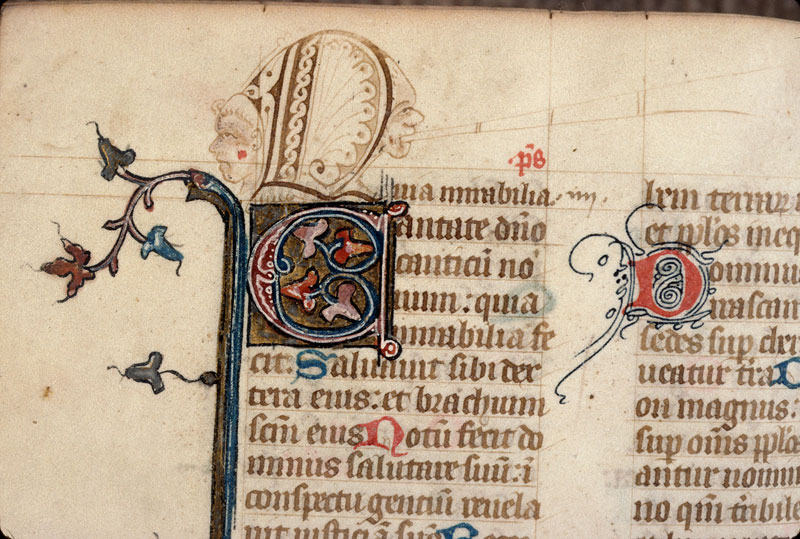 p̄s
uia mirabilia · iiii ·
Cantate dn̄o
canticū no
uum : quia
mirabilia fe
cit : Saluauit sibi dex
tera eius : et brachium
scm̄ eius Notū fecit do
minus salutare suū : ī
conspectu gentiū reuela
uit iusticiā suā
bem terrarꝝ
et pplōs in eq
Dominu
irascan
sedes sup cher
ueatur tr̄a
on magnus :
sup om̄s pplōs
antur nomin
no qm̄ tribile